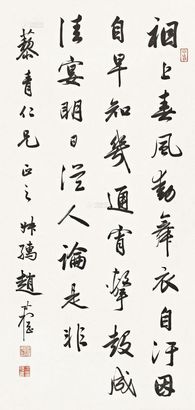 裀上春風動舞衣自汙因
自早知幾通宵鼙鼓成
佳宴明日從人論是非
藜青仁兄正之 叔孺趙時棡